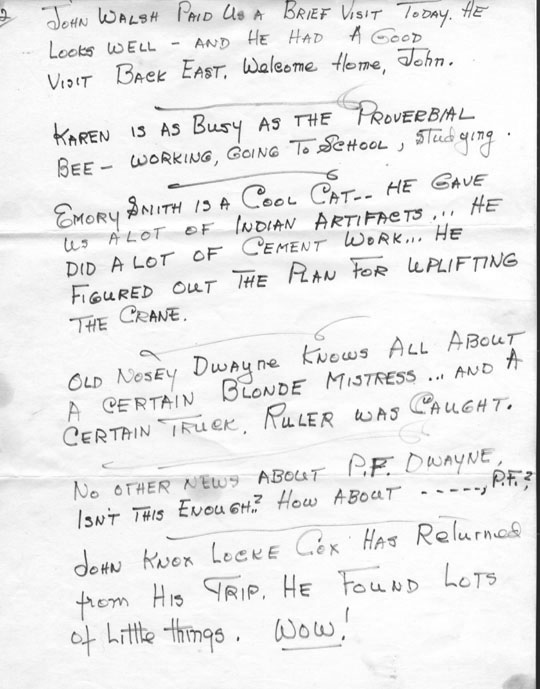 2
John Walsh Paid Us a Brief Visit Today. He
Looks Well - and He Had a Good
Visit Back East. Welcome Home, John.
Karen is as Busy as the Proverbial
Bee - Working, Going To School, Studying.
Emory Smith is a Cool Cat-- He Gave
us a Lot of Indian Artifacts... He
Did a Lot of Cement Work... He
Figured Out The Plan For Uplifting
The Crane.
Old Nosey Dwayne Knows All About
A Certain Blonde Mistress... and A
Certain Truck. Ruler was Caught.
No other News About P.F. Dwayne,
Isn't This Enough.? How About -----, P.F.?
John Knox Locke Cox Has Returned
from His Trip. He Found Lots
of Little things. Wow!